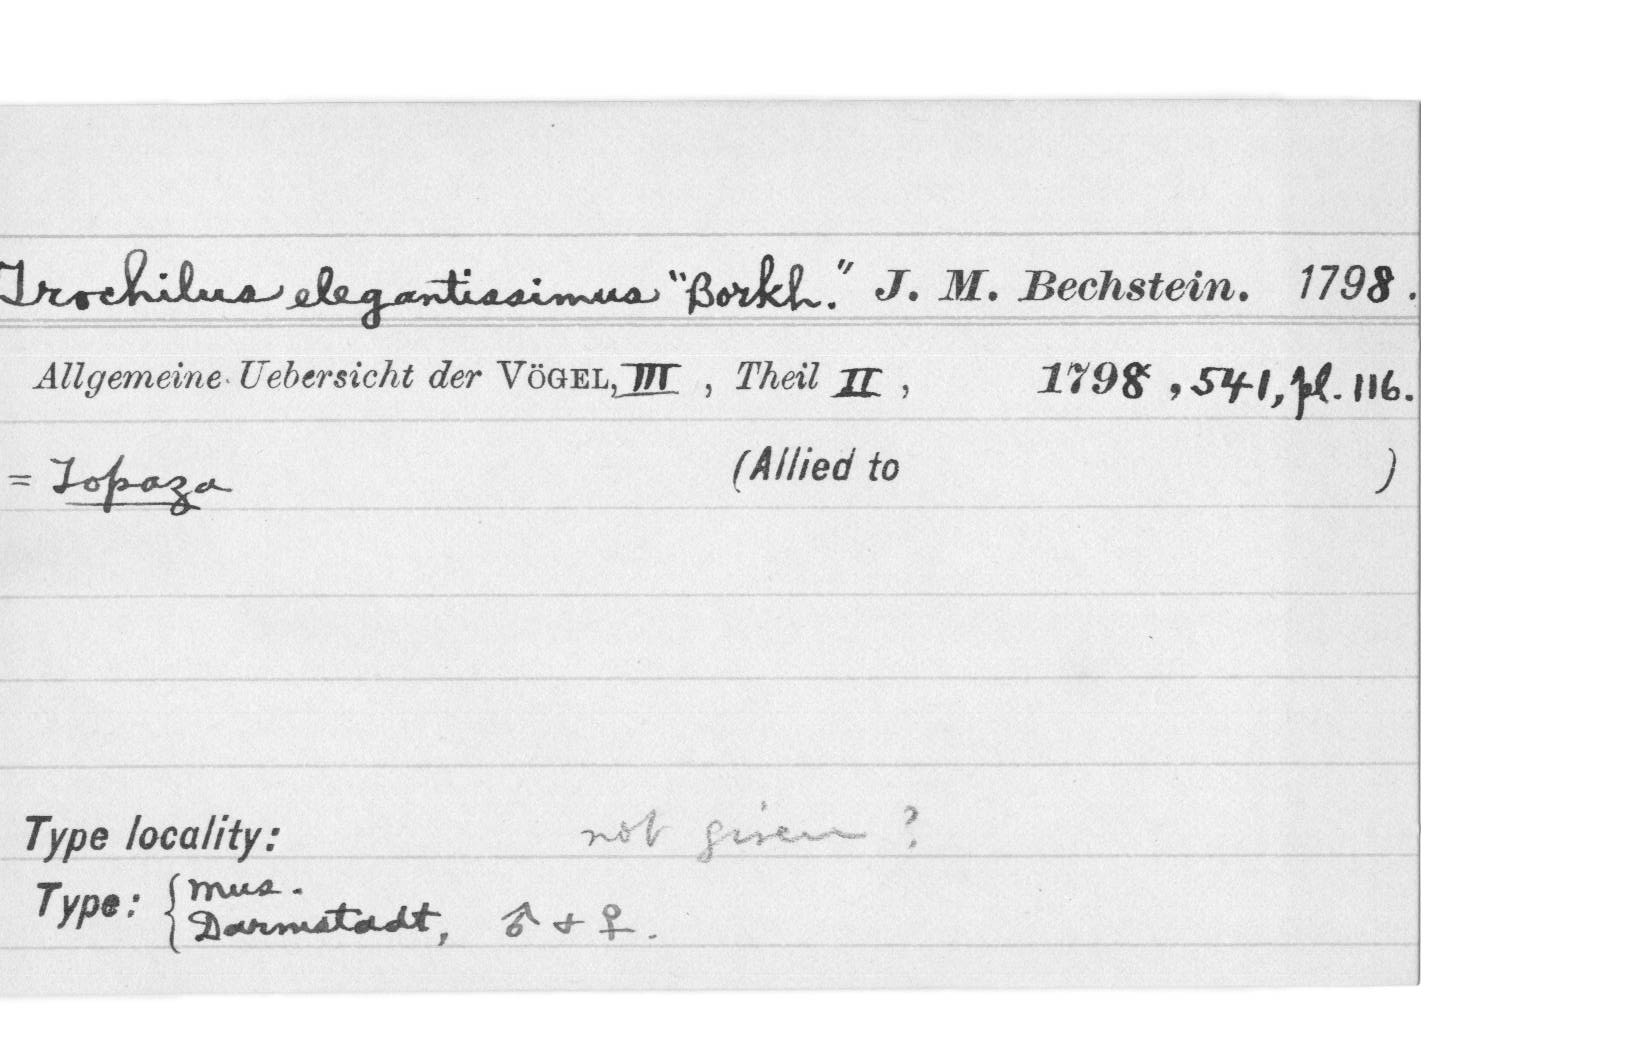 Trochilus elegantissimus "Borkh." J. M. Bechstein. 1798.
Allgemeine Uebersicht der VÖGEL, III, Theil II, 1798, 541, pl. 116.
= Topaza (Allied to )
Type locality: not given?
Type: { Mus.
Darmstadt, ♂ + ♀.